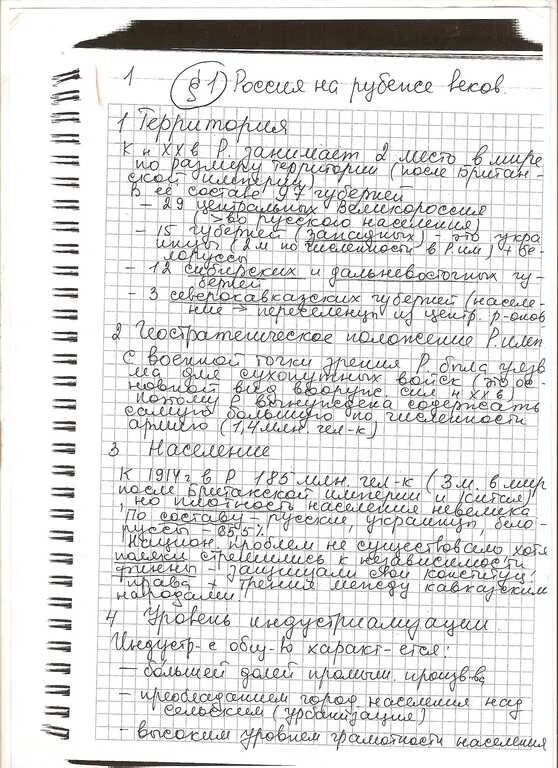 1 § 1 Россия на рубеже веков.
1 Территория
К н XX в Р. занимает 2 место в мире
по размеру территории (после Британ-
ской империи)
В её составе 97 губерней
- 29 центральных Великороссия
(>во русского населения)
- 15 губерней (западных) - это укра
инцы (2 м по численности в Р.им) + бе-
лоруссы
- 12 сибирских и дальневосточных гу-
берней
- 3 северокавказских губерней (населе-
ние → переселенцы из центр. р-онов
2 Геостратегическое положение Р. имп
С военной точки зрения Р. была уязв
ма для сухопутных войск (это ос-
новной вид вооруж. сил н XX в)
поэтому Р вынуждена содержать
самую большую по численности
армию (1,4 млн. чел-к)
3 Население
К 1914 г. в Р 185 млн. чел-к (3 м. в мир
после Британской империи и Китая)
, но плотность населения невелика
По составу - русские, украинцы, бело-
руссы - 65,5%
Национ. проблем не существовало хотя
поляки стремились к независимости
финны - защищали свои конституц.
права + трения между кавказским
народами
4 Уровень индустриализации
Индустр-е общ-во характ-ется:
- большей долей промышл. произв-ва
- преобладанием город. населения над
сельским (урбанизация)
- высоким уровнем грамотности населения